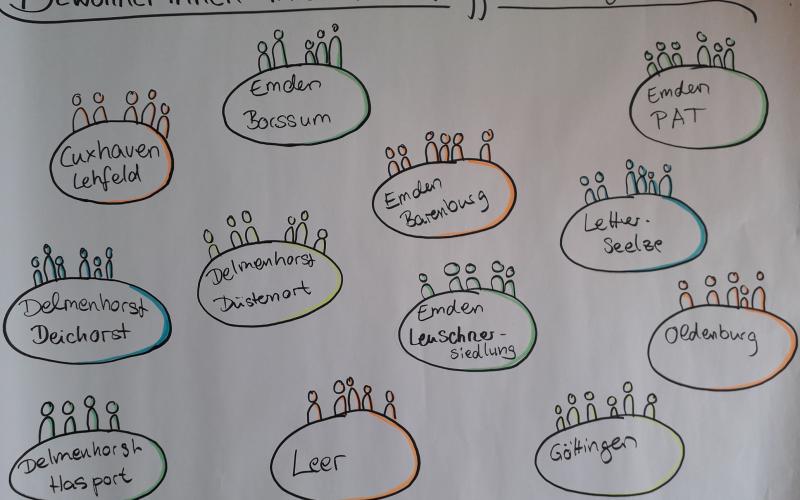 Emden
Borssum
Emden
PAT
Cuxhaven
Lehfeld
Emden
Barenburg
Letter-
Seelze
Delmenhorst
Düsternort
Delmenhorst
Deichorst
Emden
Leuschner-
siedlung
Oldenburg
Delmenhorst
Hasport
Leer
Göttingen